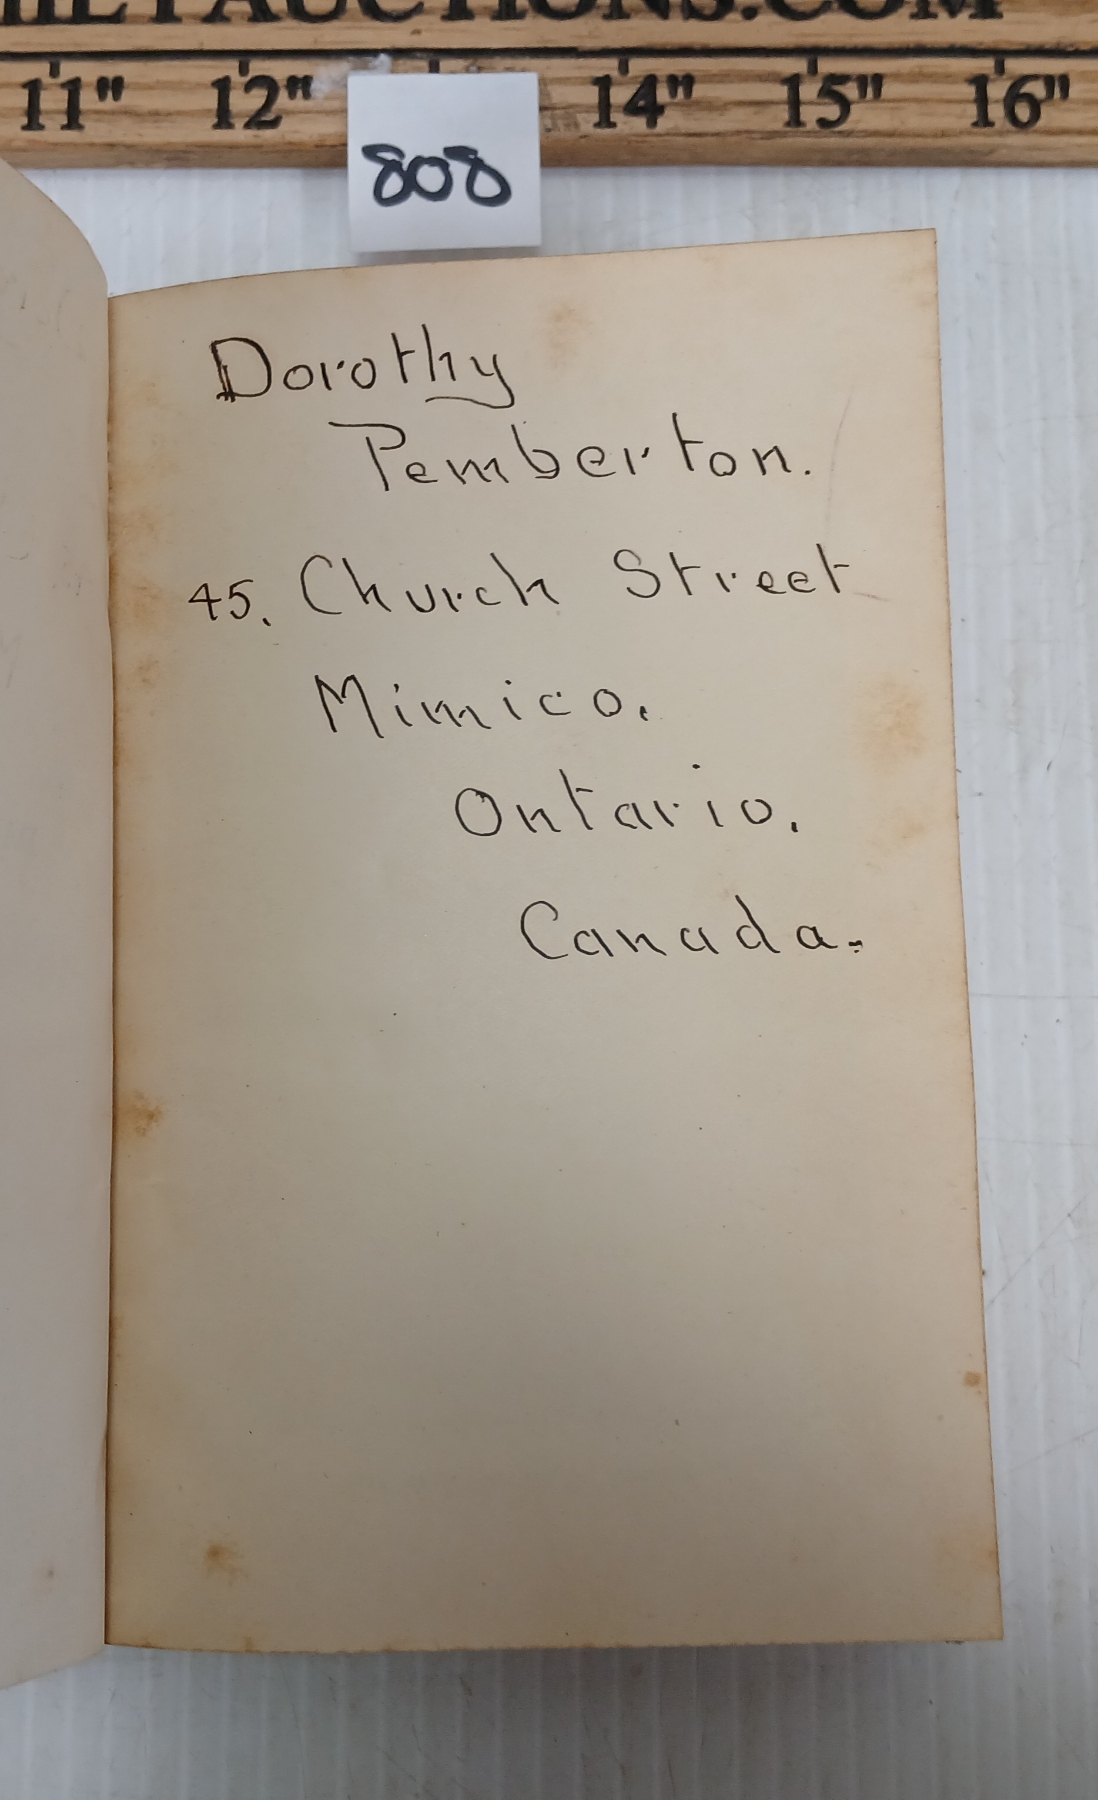 AUCTIONS.COM
11" 12" 14" 15" 16"
808
Dorothy
Pemberton.
45. Church Street
Mimico.
Ontario.
Canada.